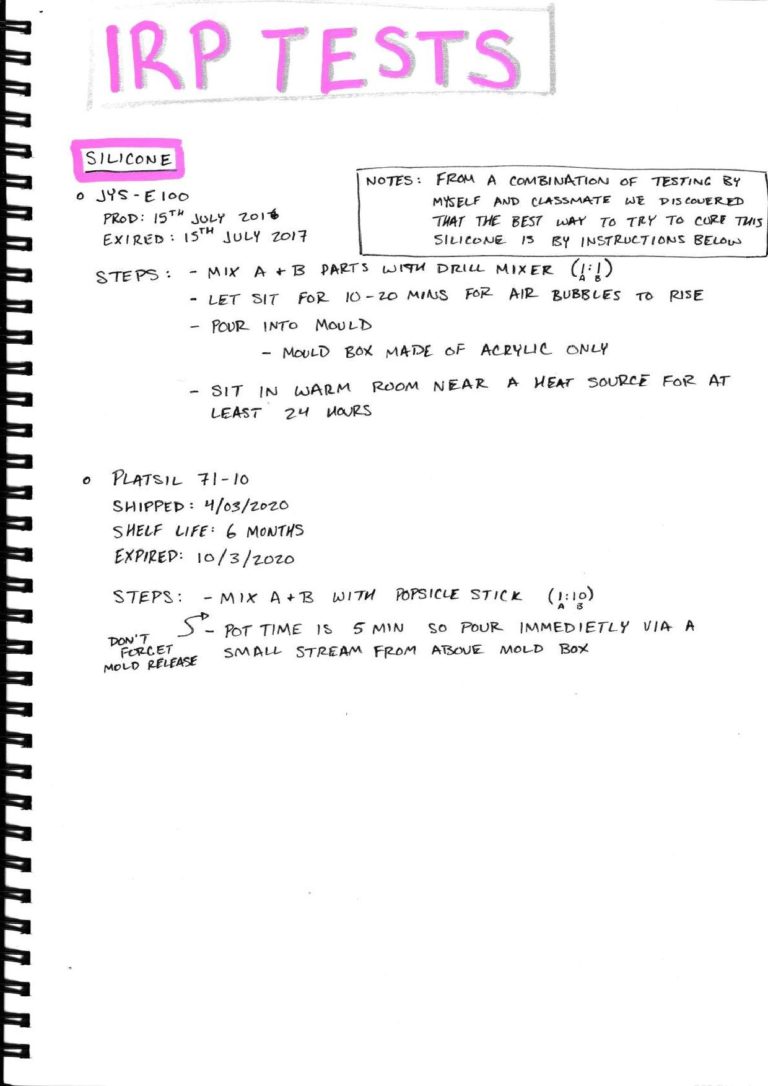 IRP TESTS
SILICONE
o JYS-E100
PROD: 15TH JULY 2016
EXIRED: 15TH JULY 2017
NOTES: FROM A COMBINATION OF TESTING BY
MYSELF AND CLASSMATE WE DISCOVERED
THAT THE BEST WAY TO TRY TO CURE THIS
SILICONE IS BY INSTRUCTIONS BELOW
STEPS: - MIX A + B PARTS WITH DRILL MIXER (1:1)
A B
- LET SIT FOR 10-20 MINS FOR AIR BUBBLES TO RISE
- POUR INTO MOULD
- MOULD BOX MADE OF ACRYLIC ONLY
- SIT IN WARM ROOM NEAR A HEAT SOURCE FOR AT
LEAST 24 HOURS
o PLATSIL 71-10
SHIPPED: 4/03/2020
SHELF LIFE: 6 MONTHS
EXPIRED: 10/3/2020
STEPS: - MIX A + B WITH POPSICLE STICK (1:10)
A B
- POT TIME IS 5 MIN SO POUR IMMEDIETLY VIA A
SMALL STREAM FROM ABOVE MOLD BOX
DON'T
FORGET
MOLD RELEASE